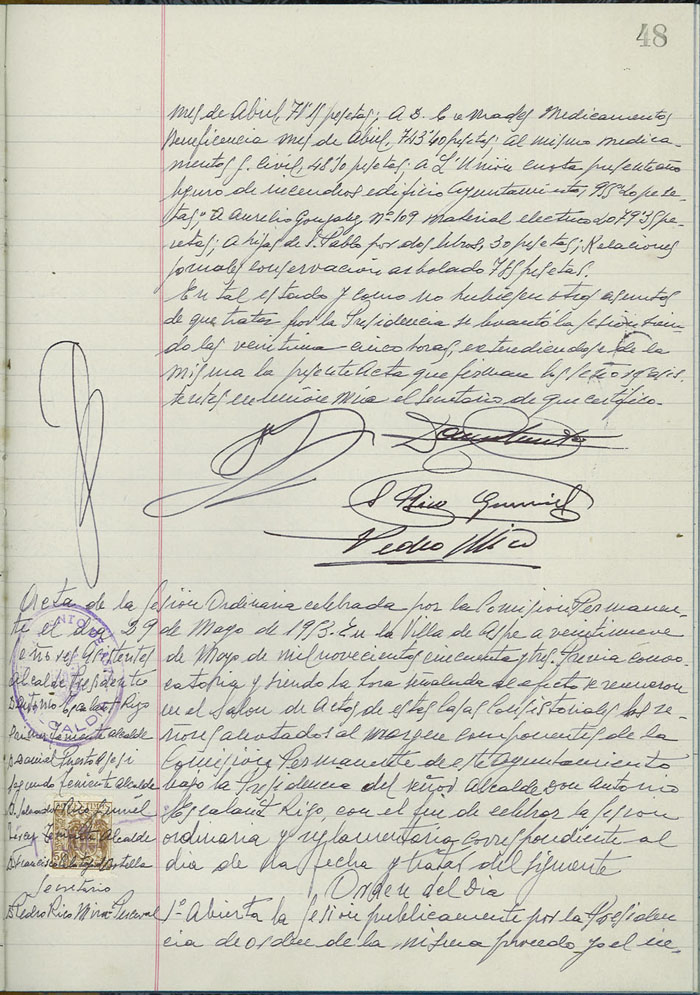 48
mes de Abril, 71'15 pesetas; A D. Cremades Medicamentos
Beneficencia mes de Abril, 743'40 pesetas; Al mismo medica-
mentos g. Civil, 48'30 pesetas; A L'Union cuota presente año
seguro de incendios edificio Ayuntamiento, 955'20 pese-
tas; A Aurelio Gonzalez, nº 109 material electrico 2079'35 pe-
setas; A hijas de S. Pablo por dos libros, 30 pesetas; Relaciones
jornales conservación arbolado 785 pesetas.
En tal estado y como no hubiesen otros asuntos
de que tratar por la Presidencia se levantó la sesion sien-
do las veintiuna cinco horas, extendiendose de la
misma la presente Acta que firman los señores asis-
tentes en union mia el Secretario de que certifico.
S Rico Gumiel
Pedro Rico
Acta de la Sesion Ordinaria celebrada por la Comision Permanen-
te el dia 29 de Mayo de 1953. En la Villa de Aspe a veintinueve
Señores Asistentes
de Mayo de mil novecientos cincuenta y tres. Previa convo-
Alcalde Presidente
catoria y siendo la hora señalada al efecto se reunieron
D. Antonio Escalant Rigo
en el Salon de Actos de estas Casas Consistoriales los se-
Primer Teniente Alcalde
ñores anotados al margen componentes de la
D. Daniel Puerto
Comision Permanente de este Ayuntamiento
Segundo Teniente Alcalde
bajo la Presidencia del señor Alcalde Don Antonio
D. Salvador Rico Gumiel
Escalant Rigo, con el fin de celebrar la sesion
Tercer Teniente Alcalde
ordinaria y reglamentaria correspondiente al
D. Francisco Botella
dia de la fecha y tratar del siguiente
Secretario
Orden del Dia
D. Pedro Rico
1º Abierta la Sesion publicamente por la Presiden-
cia de orden de la misma procedo yo el in-